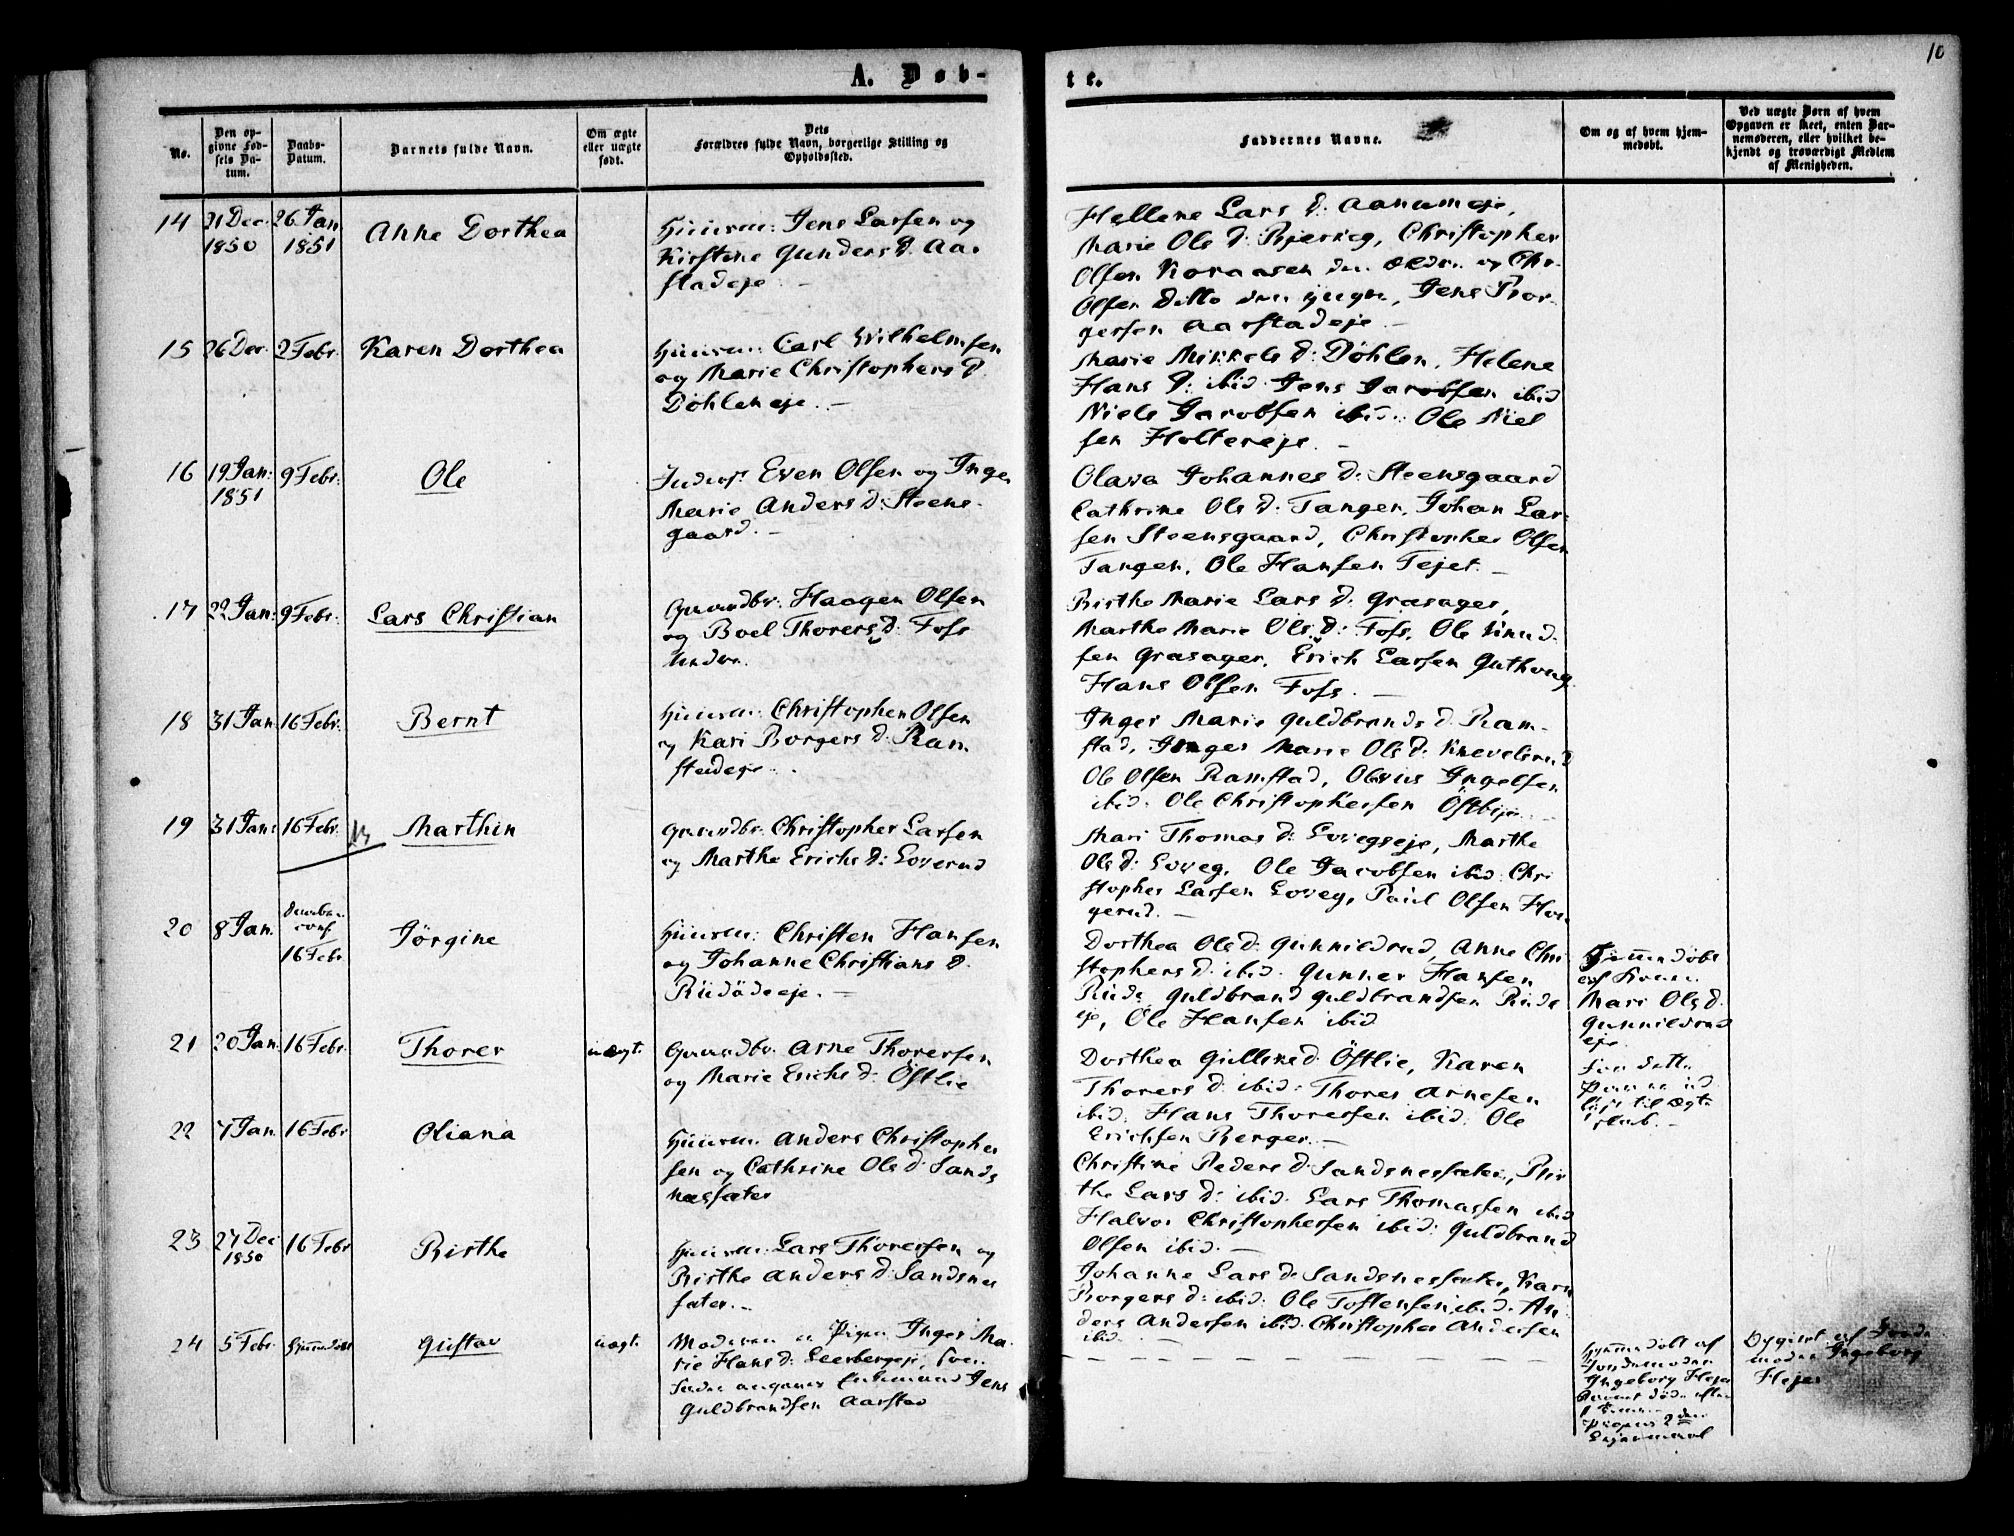 10
A. Døb-
te.
No.
Den op-
givne Fød-
sels Da-
tum.
Daabs-
Datum.
Barnets fulde Navn.
Om ægte
eller uægte
født.
Dets
Forældres fulde Navn, borgerlige Stilling og
Opholdssted.
Faddernes Navne.
Om og af hvem hjem-
medøbt.
Ved uægte Børn af hvem
Opgaven er skeet, enten Bar-
nemoderen, eller hvilket be-
kjendt og troværdigt Medlem
af Menigheden.
14
21 Dec.
1850
26 Jan
1851
Anne Dorthea
Huusm: Jens Larsen og
Kirstine Gunders D. Aa-
stadeje
Hellene Lars D: Aanumeje,
Marie Ols D: Bjerkeg, Christopher
Olsen Koraasen den ældre og Chr.
Olsen Ditto den yngre, Jens Bor-
gersen Aarstadeje
15
26 Dec.
2 Febr.
Karen Dorthea
Huusm: Carl Wilhelmsen
og Marie Christophers D.
Døhleneje. –
Marie Mikkels D: Døhlen, Helene
Hans D: ibid. Jens Jacobsen ibid
Niels Jacobsen ibid. Ole Niel
sen Holtereje. –
16
19 Jan:
1851
9 Febr.
Ole
Inderst Even Olsen og Inger
Marie Anders D: Steens-
gaard. –
Olava Johannes D: Steensgaard
Cathrine Ols D: Tangen, Johan Lar-
sen Steensgaard, Christopher Olsen
Tangen, Ole Hansen Tejet. –
17
22 Jan:
9 Febr.
Lars Christian
Gaardbr: Haagen Olsen
og Boel Thorers D: Foss
Birthe Marie Lars D: Grasager,
Marthe Marie Ols D: Foss, Ole Knud
sen Grasager, Erich Larsen Guthong
Hans Olsen Foss. –
18
31 Jan
16 Febr.
Bernt
Huusm: Christopher Olsen
og Kari Borgers D. Ram
stadeje
Inger Marie Guldbrands D. Ram-
stad, Inger Marie Ols D: Knevelsrud
Ole Olsen Ramstad, Olavus Ingelsen
ibid. Ole Christophersen Østbye –
19
31 Jan:
16 Febr.
Marthin
Gaardbr. Christopher Larsen
og Marthe Erichs D: Loverud
Mari Thomas D: Lovegseje, Marthe
Ols D: Loveg, Ole Jacobsen ibid. Chri
stopher Larsen Loveg, Paul Olsen Hou
gerud. –
20
8 Jan.
16 Febr
Jörgine
Huusm: Christen Hansen
og Johanne Christians D.
Rudödeeje. –
Dorthea Ols D. Gunnildrud, Anne Chri
stophers D. ibid. Gunner Hansen
Ruds Guldbrand Guldbrandsen Ruds
eje, Ole Hansen ibid
Hjemmedøbt
af Konen
Mari Ols D.
Gunnildrud
eje.
21
20 Jan.
16 Febr.
Thorer
uægt.
Gaardbr. Arne Thorersen
og Marie Erichs D: Östlie
Dorthea Gulliks D. Östlie, Karen
Thorers D: ibid: Thorer Arnesen
ibid. Hans Thorersen ibid. Ole
Erichsen Berger. –
22
7 Jan.
16 Febr
Oliana
Huusm: Anders Christopher
sen og Cathrine Ols D. Sands
næssæter
Christine Peders D. Sandsnessæter, Bir
the Lars D: ibid. Lars Thomassen ibid
Halvor Christophersen ibid. Guldbrand
Olsen ibid. –
23
27 Dec
1850
16 Febr
Birthe
Huusm: Lars Thoresen og
Birthe Anders D. Sandsnes
sæter. –
Johanne Lars D. Sandsnessæter, Karn
Borgers D: ibid. Ole Tostensen ibid. An-
ders Andersen ibid. Christopher Andersen
ibid.
24
5 Febr.
Hjemmedøbt
Gustav
uægt.
Moderen er Pigen Inger Ma-
rie Hans D: Leerbergeje,
Enkemand Jens
Guldbrandsen Aarstad
Hjemmedøbt af
Jordemoder
Ingeborg Hejer
Opgivet af Jorde
moder Ingeborg
Hejer